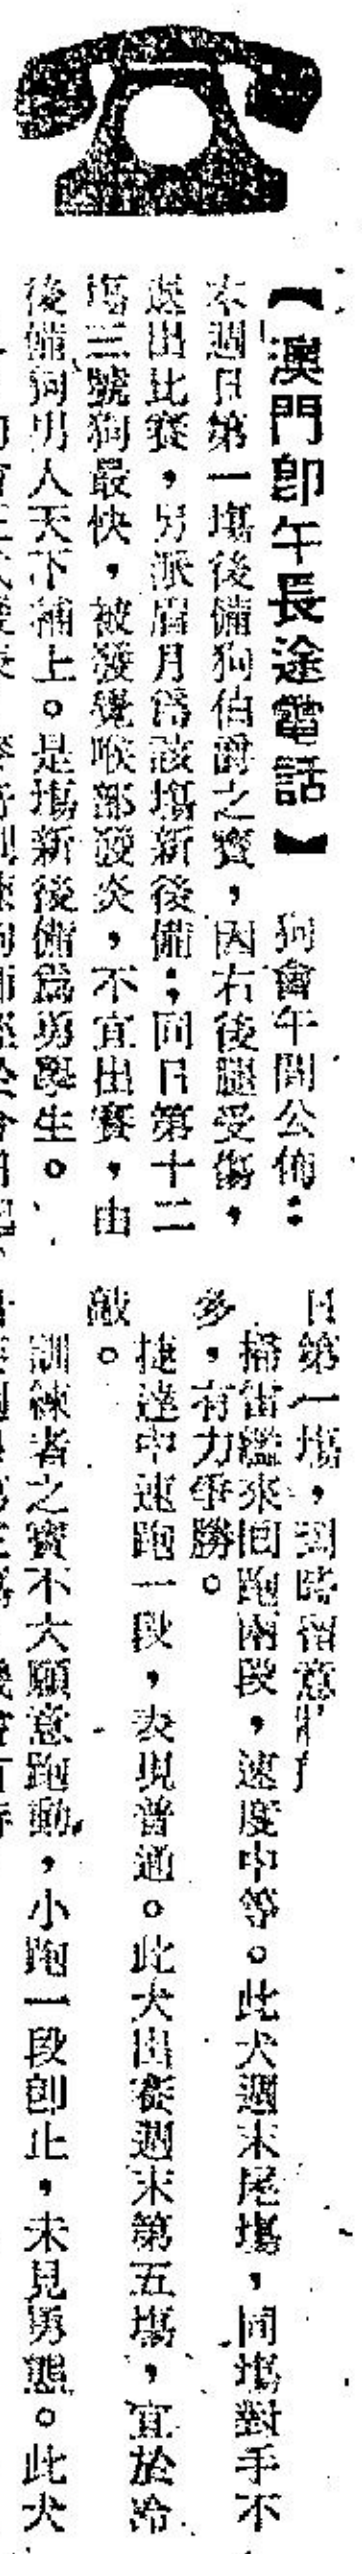 【澳門即午長途電話】狗會午間公佈：
本週日第一塲後備狗伯爵之寶，因右後腿受傷，
退出比賽，另派眉月爲該塲新後備；同日第十二
塲三號狗最快，被發覺喉部發炎，不宜出賽，由
後備狗男人天下補上。是塲新後備爲勇學生。
日第一塲，到時留意
掃雷艦來回跑兩段，速度中等。此犬週末尾塲，同塲對手不
多，有力爭勝。
捷達中速跑一段，表現普通。此犬出賽週末第五塲，宜於冷
敲。
訓練者之寶不大願意跑動，小跑一段即止，未見勇態。此犬